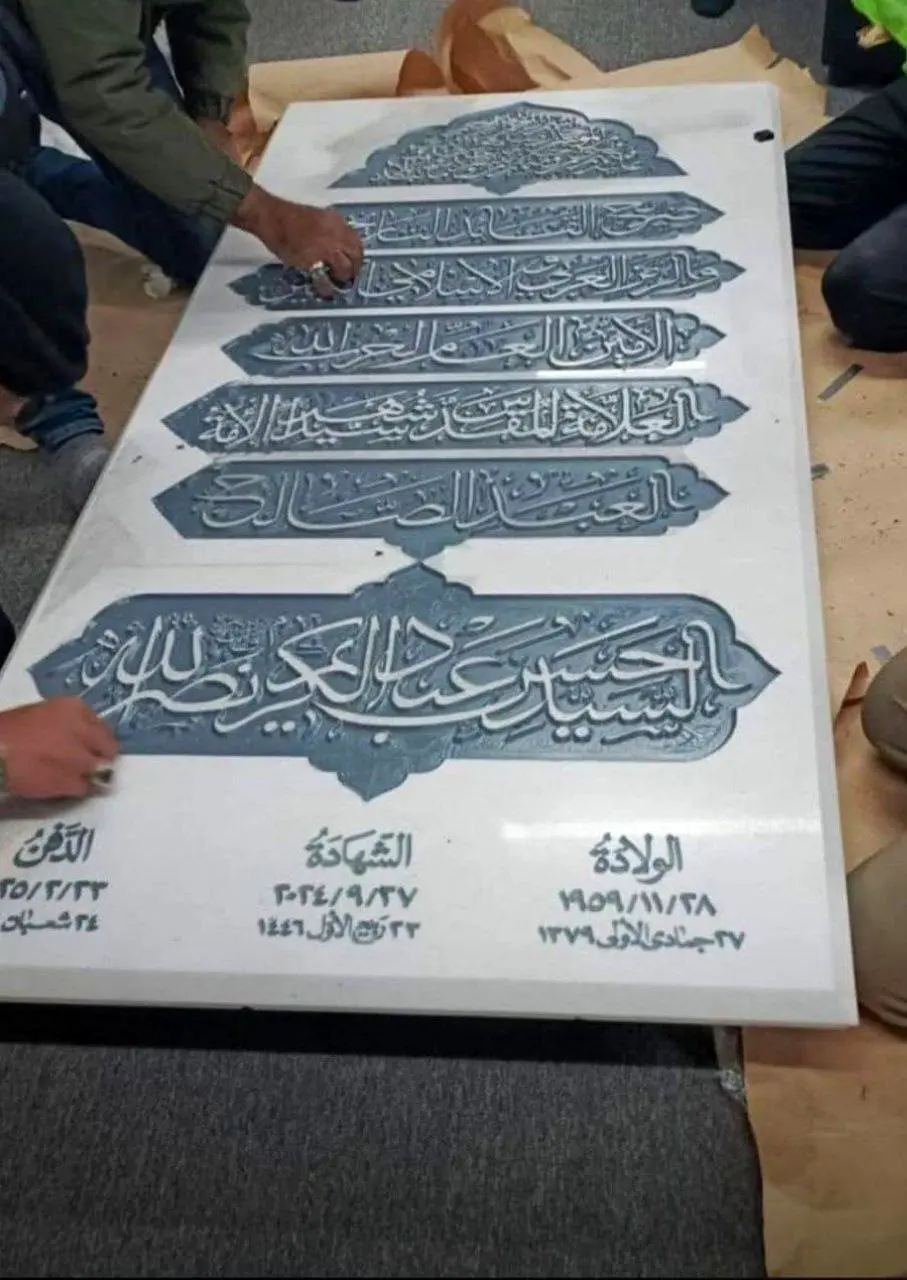 ضريح القائد
والرمز العربي والإسلامي
الأمين العام لحزب الله
العلامة المقدس شهيد الأمة
العبد الصالح
السيد حسن عبد الكريم نصر الله
الولادة
١٩٥٩/١١/٢٨
٢٧ جمادى الأولى ١٣٧٩
الشهادة
٢٠٢٤/٩/٢٧
٢٣ ربيع الأول ١٤٤٦
الدَّفنُ
٢٥/٢/٢٣
٢٤ شعبان